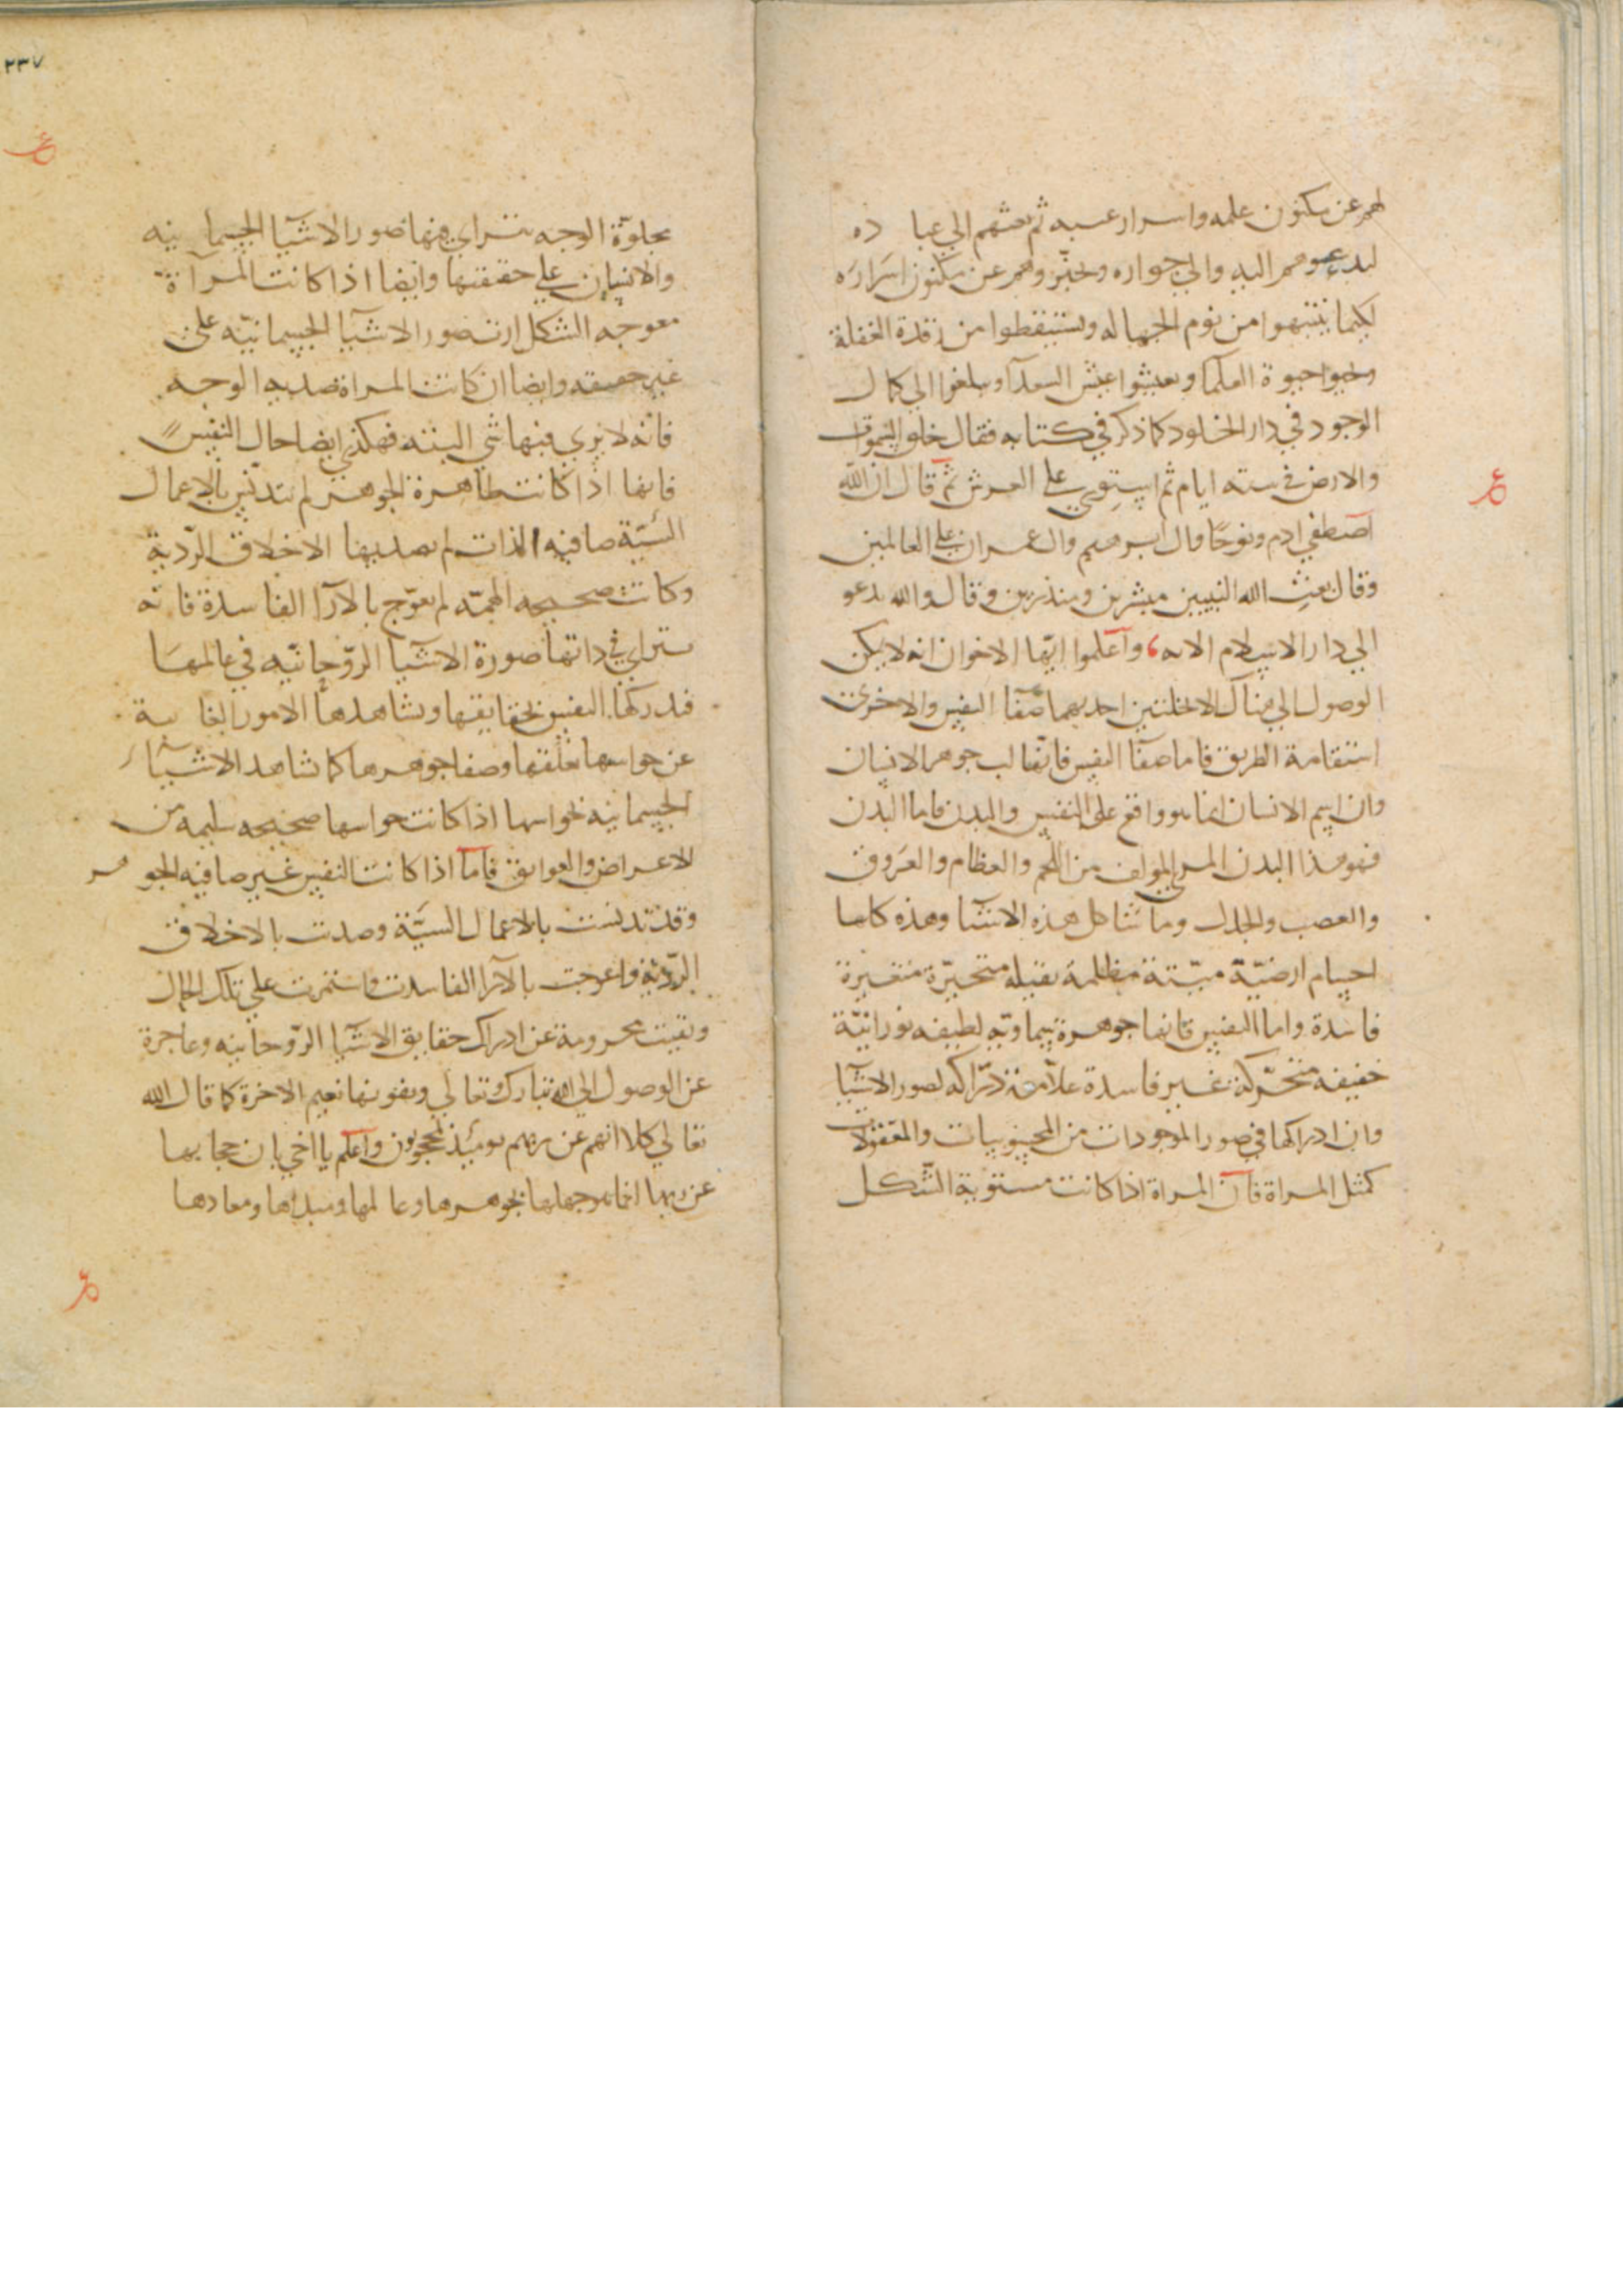 لهم عن مكنون علمه واسرار غيبه ثم بعثهم الي عباده
ليدعوهم اليه والي جواره وليخبروهم عن مكنون اسراره
لكيما ينتبهوا من نوم الجهاله ويستيقظوا من رقدة الغفلة
ويحيوا حيوة العلما ويعيشوا عيش السعدآ ويبلغوا الي كمال
الوجود في دار الخلود كما ذكر في كتابه فقال خلق السموات
والارض في ستة ايام ثم استوي علي العرش ثم قال ان الله
اصطفي ادم ونوحًا وال ابرهيم وال عمران علي العالمين
وقال بعث الله النبيين مبشرين ومنذرين وقال والله يدعو
الي دار السلام الايه واعلموا ايها الاخوان انه لا يمكن
الوصول الي هناك الا بخلتين احديهما صفآ النفس والاخري
استقامة الطريق فاما صفآ النفس فانها لب جوهر الانسان
وان اسم الانسان انما هو واقع علي النفس والبدن فاما البدن
فهو هذا البدن المرئي المولف من اللحم والعظام والعروق
والعصب والجلد وما شاكل هذه الاشيا وهذه كلها
اجسام ارضيّة ميّتة مظلمة ثقيلة متغيرة
فاسدة واما النفس فانها جوهرة سماويّه لطيفه نورانيّة
خفيفه متحرّكة غير فاسدة علّامة درّاكه لصور الاشيآ
وان ادراكها في صور الموجودات من المحسوسات والمعقولات
كمثل المراة فان المراة اذا كانت مستوية الشكل
٢٣٧
مجلوّة الوجه يترااي فيها صور الاشيآ الجسمانيه
والانسان علي حقيقتها وايضا اذا كانت المرآة
معوجه الشكل ارت صور الاشيآ الجسمانيّه علي
غير حقيقه وايضا ان كانت المراة صديه الوجه
فانه لا يري فيها شي البتّه فهكذي ايضا حال النفس
فانها اذا كانت طاهرة الجوهر لم تتدنّس بالاعمال
السيّة صافيه الذات لم يصديها الاخلاق الرّديّة
وكانت صحيحه الهمّه لم يعوّج بالآرا الفاسدة فانه
يتراي في ذاتها صورة الاشيآ الروّحانيّه في عالمها
فيدركها النفس بحقايقها ويشاهدها الامور الغايبة
عن حواسها بعقلها وصفا جوهرها كما تشاهد الاشيآء
الجسمانيه بحواسها اذا كانت حواسها صحيحه سليمه من
الاعراض والعوايق فاما اذا كانت النفس غير صافيه الجوهر
وقد تدنست بالاعمال السيّئة وصدت بالاخلاق
الرّديّة واعوجت بالآرا الفاسدة واستمرت علي تلك الحال
وبقيت محرومة عن ادراك حقايق الاشيآ الروّحانيه وعاجزة
عن الوصول الي الله تبارك وتعالي ويفوتها نعيم الاخرة كما قال الله
تعالي كلا انهم عن ربهم يوميئذ لمحجوبون واعلم يا اخي بان حجابها
عن ربها انما هو جهلها بجوهرها وعالمها ومبداها ومعادها